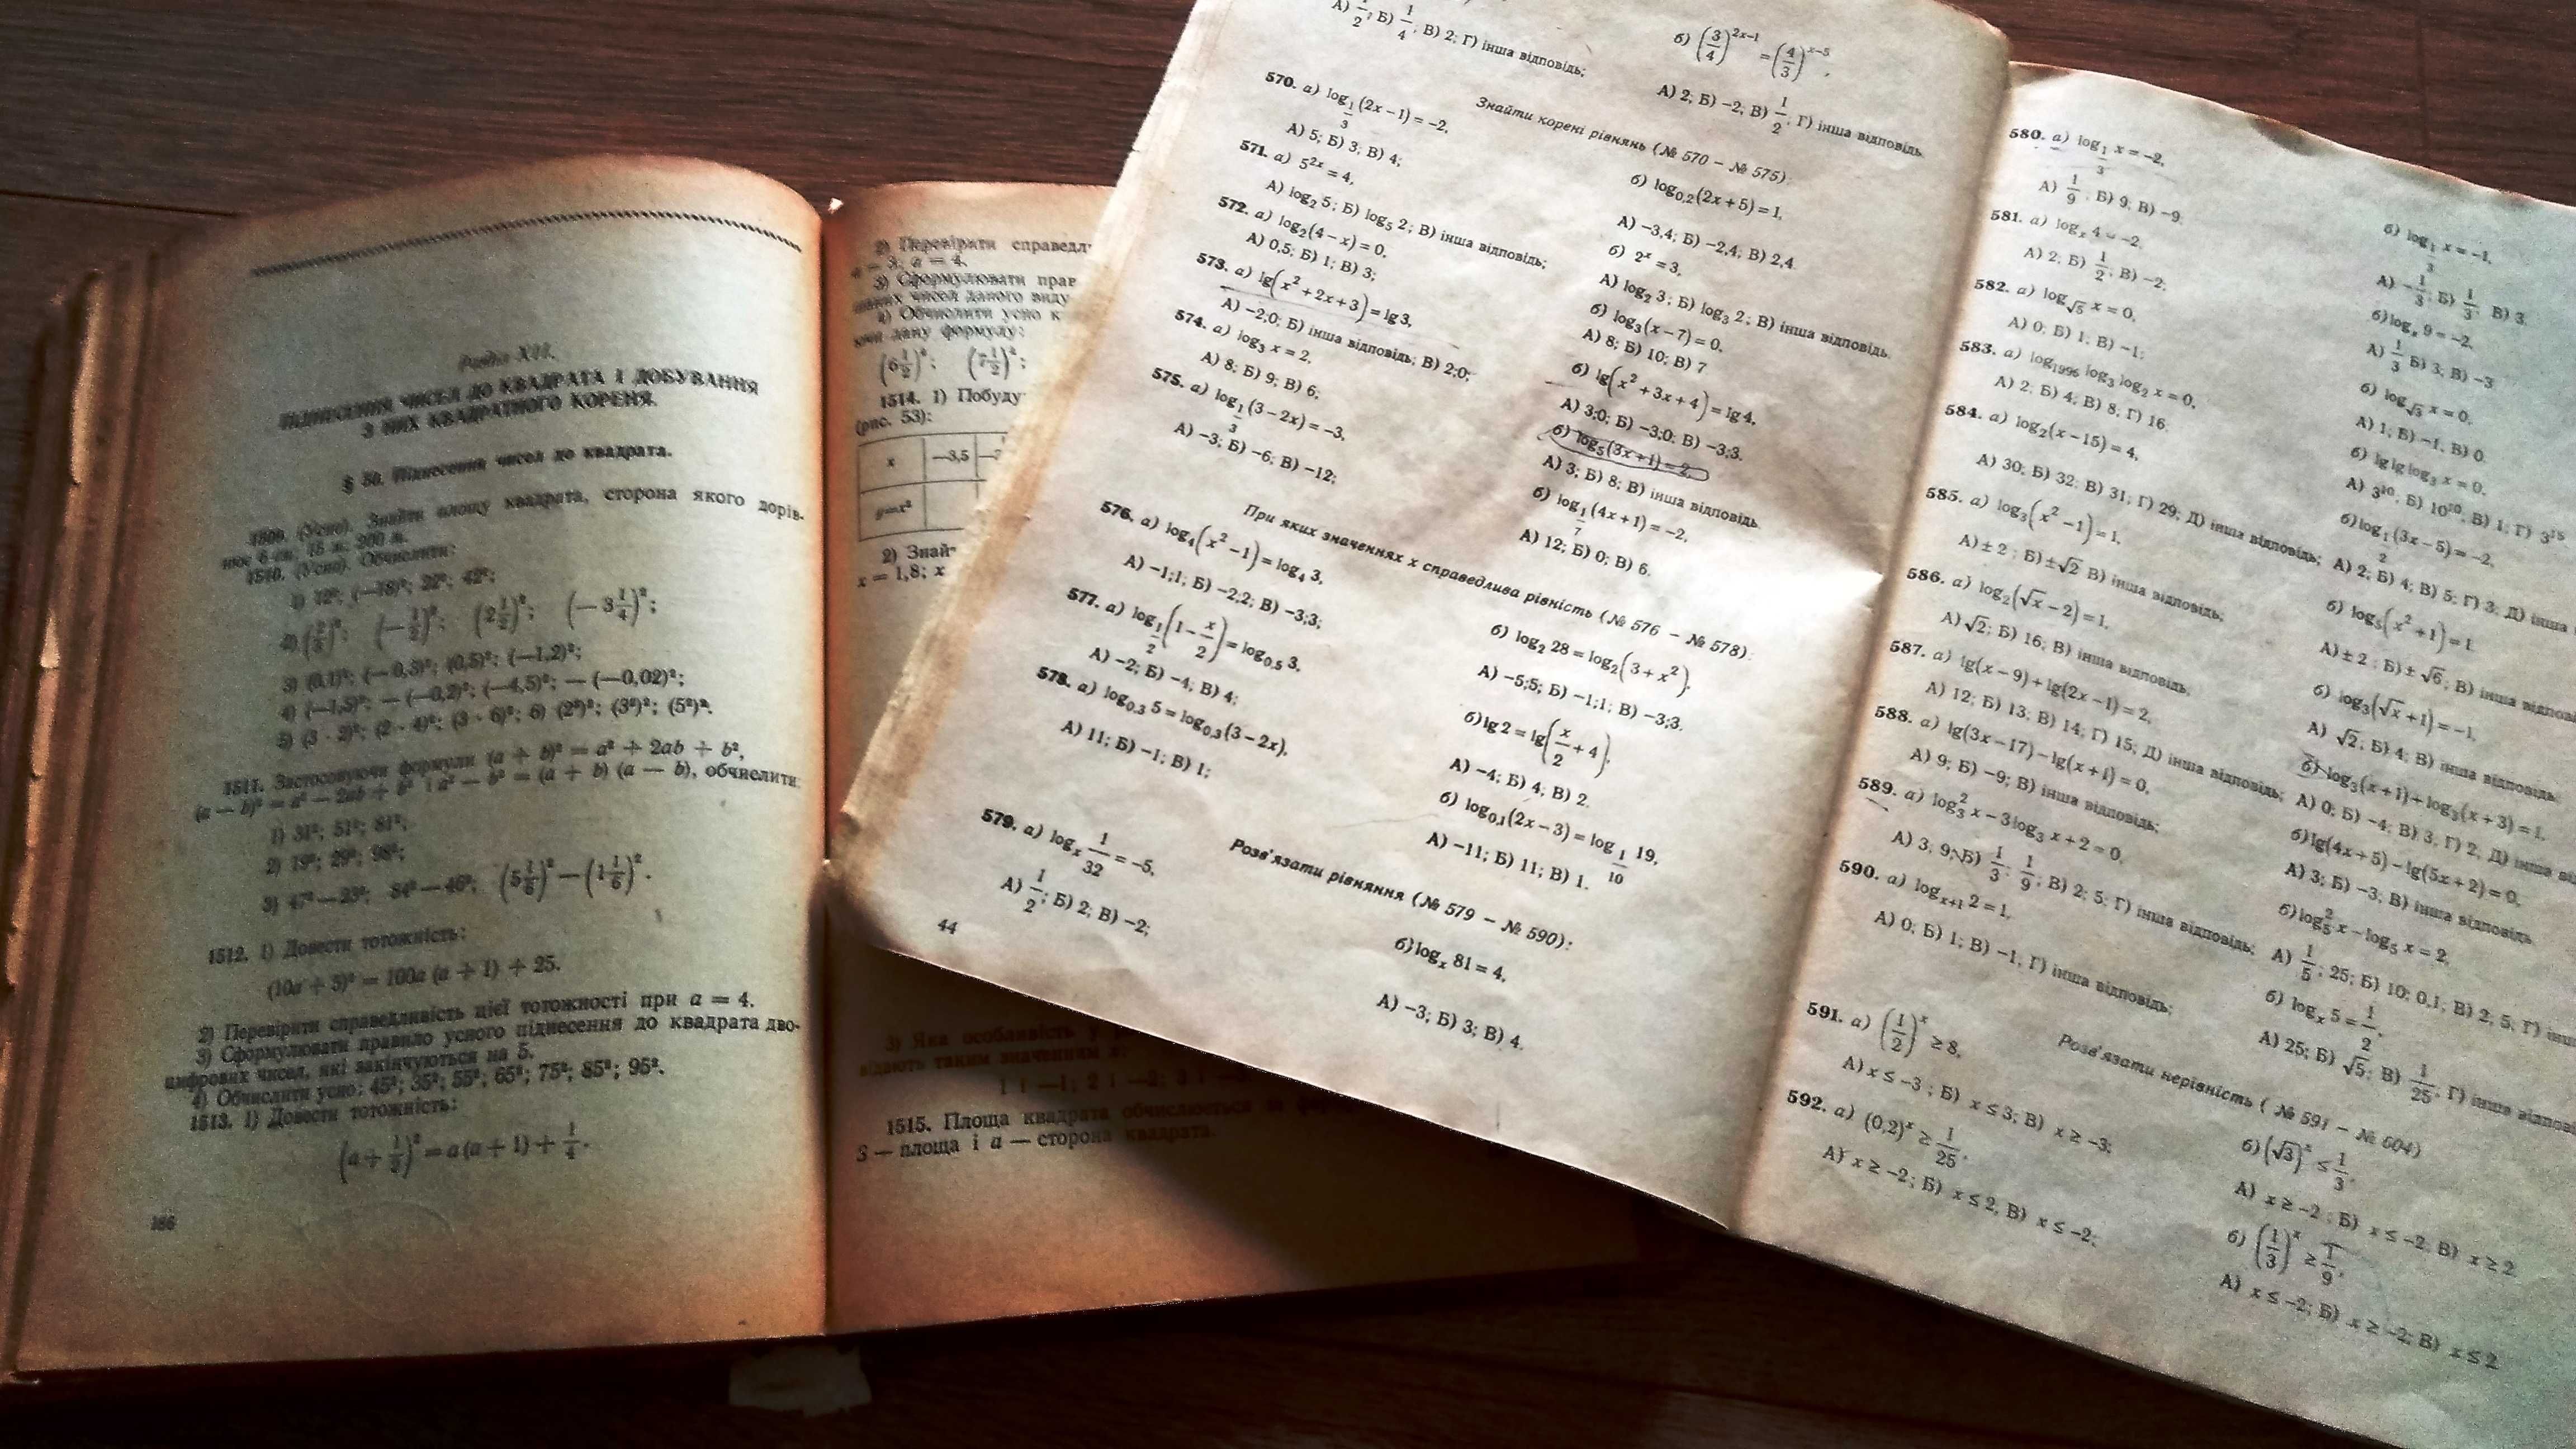 Розділ XII.
ПІДНЕСЕННЯ ЧИСЕЛ ДО КВАДРАТА І ДОБУВАННЯ
З НИХ КВАДРАТНОГО КОРЕНЯ.
§ 50. Піднесення чисел до квадрата.
1509. (Усно). Знайти площу квадрата, сторона якого дорів-
нює 6 см; 15 м; 200 м.
1510. (Усно). Обчислити:
1) 12²; (—18)²; 22²; 42²;
(—1/2)²; (2 1/2)²; (—3 1/4)²;
3) (0,1)²; (—0,3)²; (0,5)²; (—1,2)²;
4) (—1,5)²; —(—0,2)²; (—4,5)²; —(—0,02)²;
5) (3 · 2)²; (2 · 4)²; (3 · 6)²; 6) (2²)²; (3²)²; (5²)².
1511. Застосовуючи формули (a + b)² = a² + 2ab + b²,
(a — b)² = a² — 2ab + b² і a² — b² = (a + b) (a — b), обчислити:
1) 31²; 51²; 81²;
2) 19²; 29²; 98²;
3) 47² — 23²; 84² — 46²; (5 1/6)² — (1 1/6)².
1512. 1) Довести тотожність:
(10a + 5)² = 100a (a + 1) + 25.
2) Перевірити справедливість цієї тотожності при a = 4.
3) Сформулювати правило усного піднесення до квадрата дво-
цифрових чисел, які закінчуються на 5.
4) Обчислити усно: 45²; 35²; 55²; 65²; 75²; 85²; 95².
1513. 1) Довести тотожність:
(a + 1/2)² = a (a + 1) + 1/4.
186
2) Перевірити справедл
a = 3; a = 4.
3) Сформулювати прав
шаних чисел даного виду
4) Обчислити усно к
ючи дану формулу:
(6 1/2)²; (7 1/2)²;
1514. 1) Побуду
(рис. 53):
x —3,5
y=x²
2) Знай
x = 1,8; x
3) Яка особливість у
відають таким значенням x:
1 і —1; 2 і —2; 3 і —3.
1515. Площа квадрата обчислюється за
S — площа і a — сторона квадрата.
А) 1/2; Б) 1/4; В) 2; Г) інша відповідь;
б) (3/4)^(2x−1) = (4/3)^(x−5),
А) 2; Б) −2; В) 1/2; Г) інша відповідь.
Знайти корені рівнянь (№ 570 – № 575):
570. а) log_(1/3) (2x − 1) = −2,
А) 5; Б) 3; В) 4;
б) log_0,2 (2x + 5) = 1,
А) −3,4; Б) −2,4; В) 2,4.
571. а) 5^(2x) = 4,
А) log₂ 5; Б) log₅ 2; В) інша відповідь;
б) 2^x = 3,
А) log₂ 3; Б) log₃ 2; В) інша відповідь.
572. а) log₂(4 − x) = 0,
А) 0,5; Б) 1; В) 3;
б) log₃(x − 7) = 0,
А) 8; Б) 10; В) 7
573. а) lg(x² + 2x + 3) = lg 3,
А) −2;0; Б) інша відповідь; В) 2;0;
б) lg(x² + 3x + 4) = lg 4,
А) 3;0; Б) −3;0; В) −3;3.
574. а) log₃ x = 2,
А) 8; Б) 9; В) 6;
б) log₅(3x + 1) = 2,
А) 3; Б) 8; В) інша відповідь.
575. а) log_(1/3) (3 − 2x) = −3,
А) −3; Б) −6; В) −12;
б) log_(1/7) (4x + 1) = −2,
А) 12; Б) 0; В) 6.
При яких значеннях x справедлива рівність (№ 576 – № 578):
576. а) log₄(x² − 1) = log₄ 3,
А) −1;1; Б) −2;2; В) −3;3;
б) log₂ 28 = log₂(3 + x²),
А) −5;5; Б) −1;1; В) −3;3.
577. а) log_(1/2) (1 − x/2) = log_0,5 3,
А) −2; Б) −4; В) 4;
б) lg 2 = lg(x/2 + 4),
А) −4; Б) 4; В) 2.
578. а) log_0,3 5 = log_0,3 (3 − 2x),
А) 11; Б) −1; В) 1;
б) log_0,1 (2x − 3) = log_(1/10) 19,
А) −11; Б) 11; В) 1.
Розв'язати рівняння (№ 579 – № 590):
579. а) log_x 1/32 = −5,
А) 1/2; Б) 2; В) −2;
б) log_x 81 = 4,
А) −3; Б) 3; В) 4.
44
580. а) log_(1/3) x = −2,
А) 1/9; Б) 9; В) −9;
б) log_(1/3) x = −1,
А) −1/3; Б) 1/3; В) 3.
581. а) log_x 4 = −2,
А) 2; Б) 1/2; В) −2;
б) log_x 9 = −2,
А) 1/3 Б) 3; В) −3
582. а) log_√5 x = 0,
А) 0; Б) 1; В) −1;
б) log_√3 x = 0,
А) 1; Б) −1, В) 0.
583. а) log_1996 log₃ log₂ x = 0,
А) 2; Б) 4; В) 8; Г) 16;
б) lg lg log₃ x = 0,
А) 3¹⁰, Б) 10¹⁰, В) 1; Г) 3¹⁵
584. а) log₂(x − 15) = 4,
А) 30; Б) 32; В) 31; Г) 29; Д) інша відповідь;
б) log_(1/2) (3x − 5) = −2,
А) 2; Б) 4; В) 5; Г) 3; Д) інша
585. а) log₃(x² − 1) = 1,
А) ± 2; Б) ±√2 В) інша відповідь;
б) log₅(x² + 1) = 1
А) ± 2; Б) ± √6; В) інша
586. а) log₂(√x − 2) = 1,
А) √2; Б) 16; В) інша відповідь;
б) log₃(√x + 1) = −1,
А) √2; Б) 4; В) інша відповідь.
587. а) lg(x − 9) + lg(2x − 1) = 2,
А) 12; Б) 13; В) 14; Г) 15; Д) інша відповідь;
б) log₃(x + 1) + log₃(x + 3) = 1.
А) 0; Б) −4; В) 3, Г) 2, Д) інша
588. а) lg(3x − 17) − lg(x + 1) = 0,
А) 9; Б) −9; В) інша відповідь;
б) lg(4x + 5) − lg(5x + 2) = 0,
А) 3; Б) −3, В) інша відповідь.
589. а) log₃² x − 3 log₃ x + 2 = 0,
А) 3; 9; Б) 1/3; 1/9; В) 2; 5; Г) інша відповідь;
б) log₅² x − log₅ x = 2,
А) 1/5; 25; Б) 10; 0,1, В) 2; 5, Г)
590. а) log_(x+1) 2 = 1,
А) 0; Б) 1; В) −1, Г) інша відповідь;
б) log_x 5 = 1/2,
А) 25; Б) √5; В) 1/25; Г) інша
Розв'язати нерівність ( № 591 – № 604)
591. а) (1/2)^x ≥ 8,
А) x ≤ −3; Б) x ≤ 3; В) x ≥ −3;
б) (√3)^x ≤ 1/3,
А) x ≥ −2; Б) x ≤ −2; В) x ≥ 2
592. а) (0,2)^x ≥ 1/25,
А) x ≥ −2; Б) x ≤ 2, В) x ≤ −2;
б) (1/3)^x ≥ 1/9,
А) x ≤ −2; Б) x ≥ −2; В) x ≤ 2